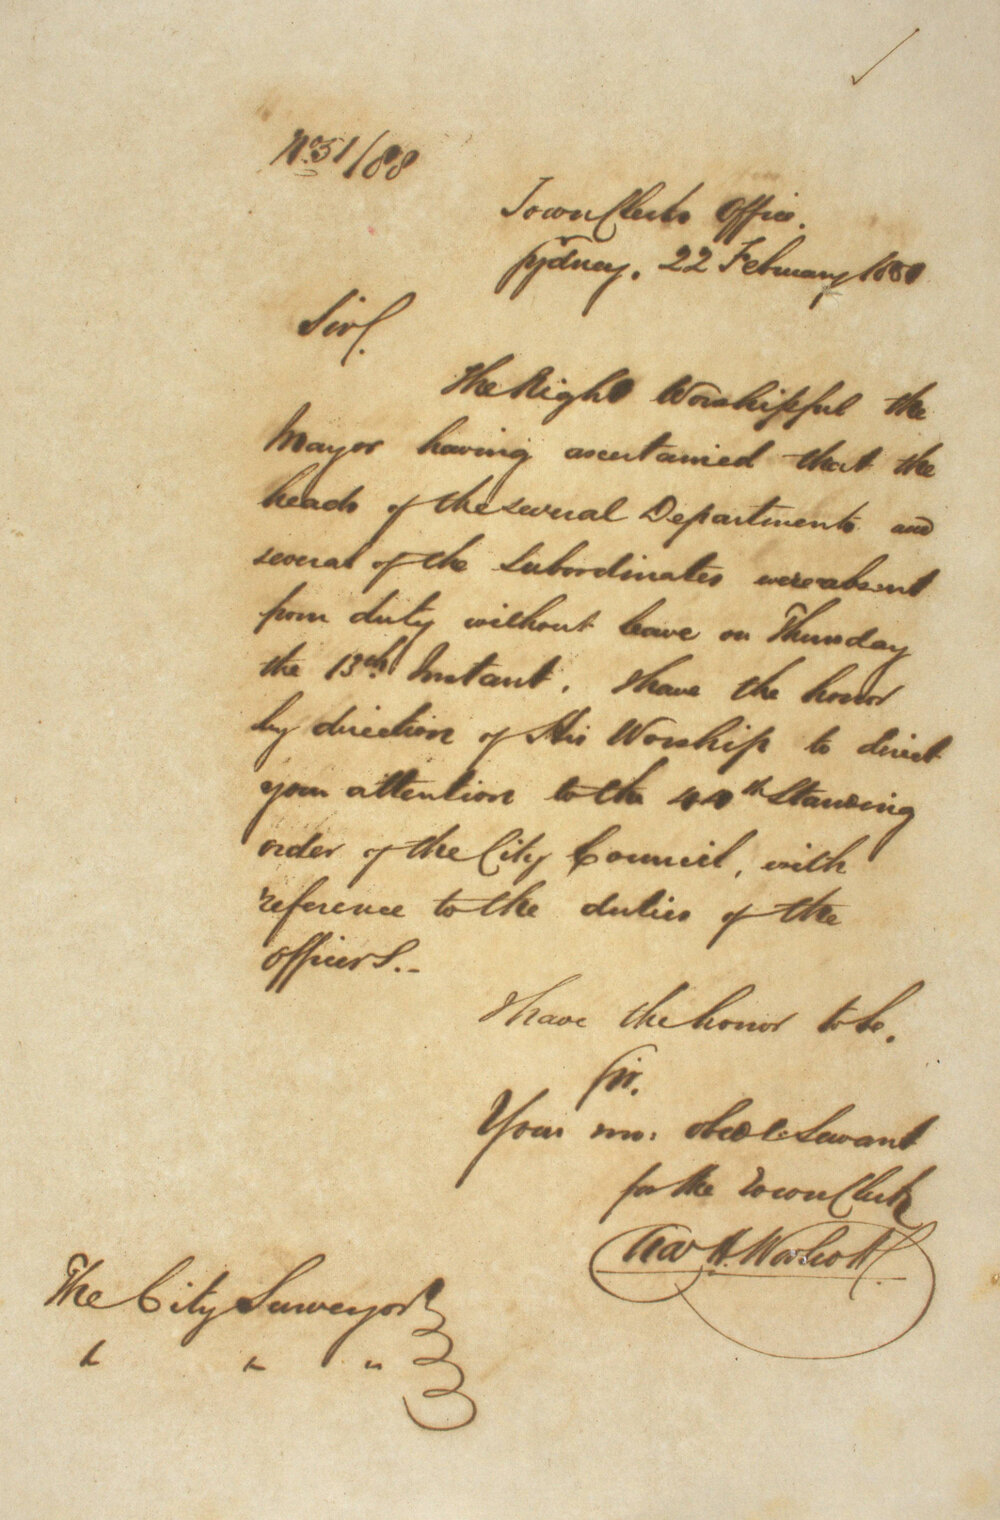 No. 51/88
Town Clerks Office.
Sydney, 22 February
Sir/.
The Right Worshipful the
Mayor having ascertained that the
heads of the several Departments and
several of the Subordinates were absent
from duty without leave on Thursday
the 13th Instant. I have the honor
by direction of His Worship to direct
your attention to the 44th Standing
order of the City Council, with
reference to the duties of the
officers.-
I have the honor to be.
Sir.
Your mo: obedt. Servant
for the Town Clerk
Chas H. Woolcott
The City Surveyor
" " "